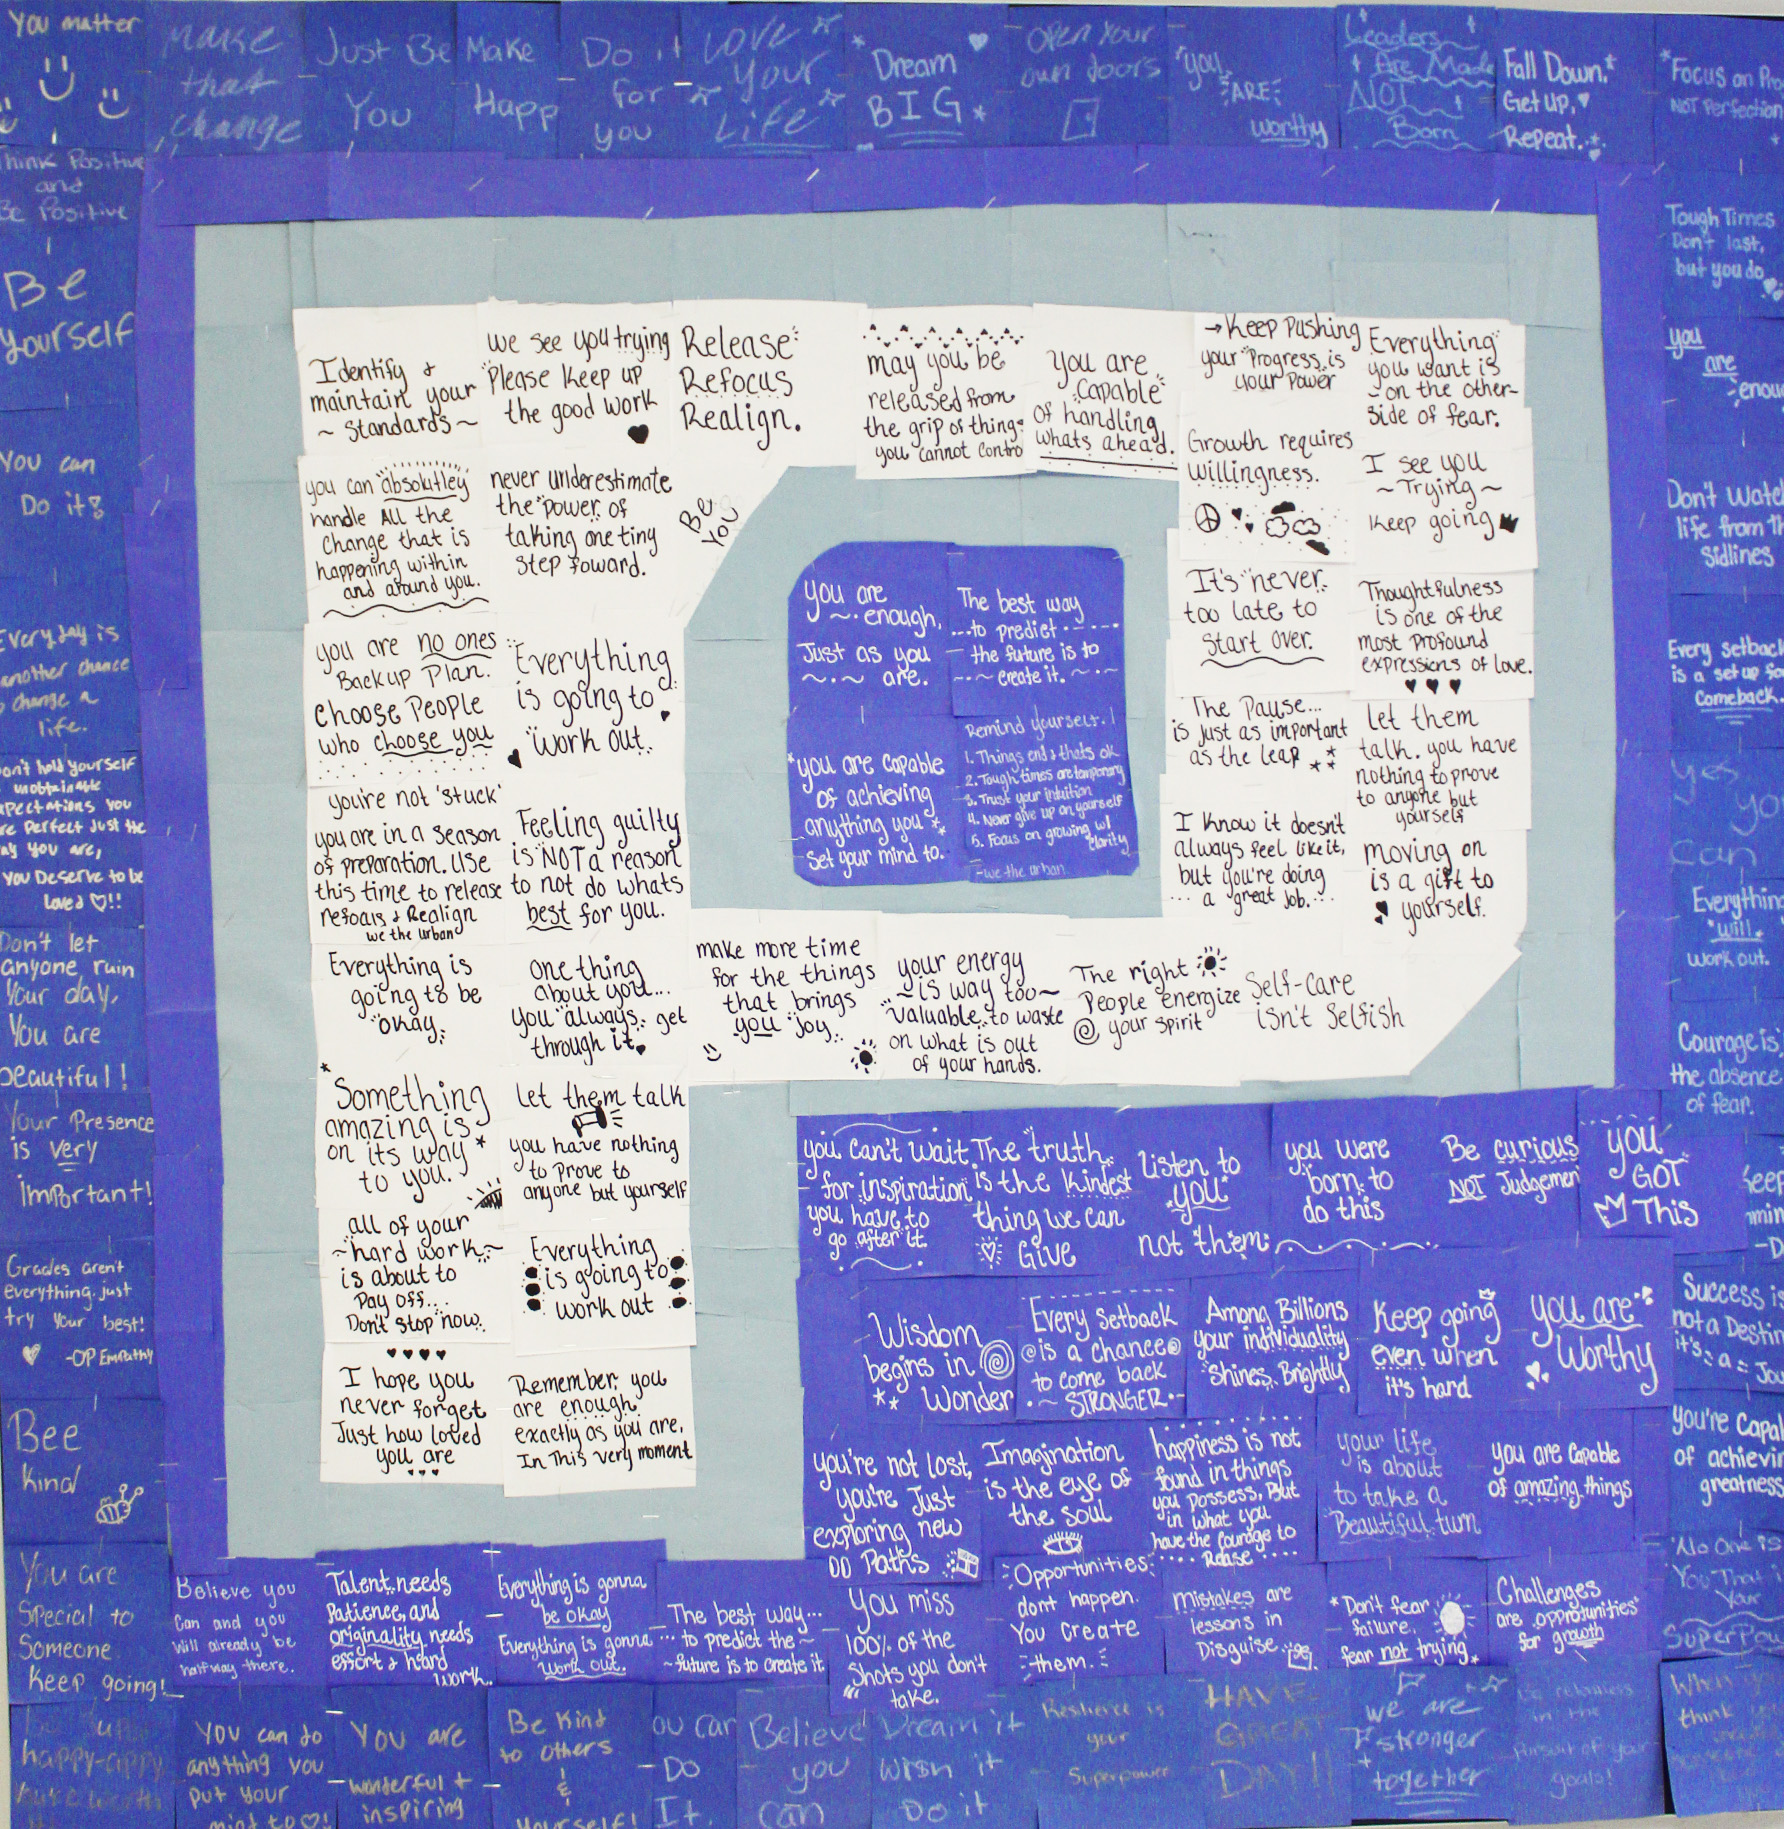 You matter
Make
that
change
Just Be
You
Make
Happ
Do it
for
you
LOVE
Your
Life
Dream
BIG
OPEN Your
own doors
you
ARE
worthy
Leaders
Are Made
NOT
Born
Fall Down.
Get up,
Repeat.
Focus on Pro
NOT Perfection
Think Positive
and
Be Positive
Be
Yourself
You can
Do it!
Every day is
another chance
change a
life.
on't hold yourself
unobtainable
xpectations you
re perfect just the
ay you are,
you Deserve to be
Loved ♡!!
Don't let
anyone ruin
Your day,
You are
beautiful!
Your Presence
is very
important!
Grades aren't
everything. just
try your best!
-OP Empathy
Bee
kind
You are
Special to
Someone
Keep going!
Identify &
maintain your
~ Standards ~
we see you trying
Please keep up
the good work
Release
Refocus
Realign.
may you be
released from
the grip of things
you cannot contro
you are
capable
of handling
whats ahead.
→Keep Pushing
your Progress is
your Power
Everything
you want is
on the other-
side of fear.
you can absolutley
handle All the
change that is
happening within
and around you.
never underestimate
the power of
taking one tiny
step foward.
Be
You
Growth requires
willingness.
I see you
~ Trying ~
keep going
you are no ones
Backup Plan.
choose People
who choose you
Everything
is going to
work out.
It's never
too late to
start over.
Thoughtfulness
is one of the
most profound
expressions of love.
you're not 'stuck'
you are in a season
of preparation. Use
this time to release
refocus & Realign
we the urban
Feeling guilty
is NOT a reason
to not do whats
best for you.
The Pause...
is just as important
as the leap
Let them
talk. you have
nothing to prove
to anyone but
yourself
I know it doesn't
always feel like it,
but you're doing
a great job.
moving on
is a gift to
yourself.
you are
enough,
Just as you
are.
The best way
to predict
the future is to
create it.
you are capable
of achieving
anything you
set your mind to.
Remind yourself.
1. Things end & thats ok
2. Tough times are temporary
3. Trust your intuition
4. Never give up on yourself
5. Focus on growing w/
clarity
-we the urban
Everything is
going to be
okay.
one thing
about you...
you always get
through it.
make more time
for the things
that brings
you joy.
your energy
~ is way too ~
valuable to waste
on what is out
of your hands.
The right
People energize
your spirit
Self-care
isn't selfish
Something
amazing is
on its way
to you.
Let them talk
you have nothing
to prove to
anyone but yourself
all of your
~hard work~
is about to
Pay off...
Don't stop now.
Everything
is going to
work out
I hope you
never forget
Just how loved
you are
Remember, you
are enough
exactly as you are,
In This very moment
Tough Times
Don't last,
but you do
you
are
enou
Don't watch
life from th
sidlines
Every setback
is a set up fo
comeback.
Yes, yo
can
Everything
will
work out.
Courage is
the absence
of fear.
you can't wait
for inspiration
you have to
go after it.
The truth
is the kindest
thing we can
Give
Listen to
you
not them
you were
born to
do this
Be curious
NOT Judgemen
you
GOT
This
Wisdom
begins in
Wonder
Every setback
is a chance
to come back
~ STRONGER ~
Among Billions
your individuality
Shines Brightly
Keep going
even when
it's hard
you are
Worthy
Success is
not a Destin
it's = a = Jou
you're not lost,
you're Just
exploring new
Paths
Imagination
is the eye of
the soul
happiness is not
found in things
you possess, But
in what you
have the courage to
Relase
your life
is about
to take a
Beautiful turn
you are capable
of amazing things
you're capa
of achievin
greatness
Believe you
Can and you
will already be
halfway there.
Talent needs
Patience, and
originality needs
effort & hard
work.
Everything is gonna
be okay
Everything is gonna
work out.
The best way...
... to predict the ~
~ future is to create it
You miss
100% of the
shots you don't
take.
Opportunities
dont happen.
You create
them.
Mistakes are
lessons in
Disguise
Don't fear
failure.
fear not trying
Challenges
are opprotunities
for growth
No One is
You That i
Your
Superpow
happy-
You can do
anything you
put your
mind to ♡!
You are
wonderful &
inspiring
Be Kind
to others
&
Yourself!
ou can
Do
It.
Believe
you
can
Dream it
wish it
Do it
Resilience is
your
Superpower
HAVE
GREAT
DAY!!
we are
stronger
together
in the
Pursuit of your
goals!
When y
think yo